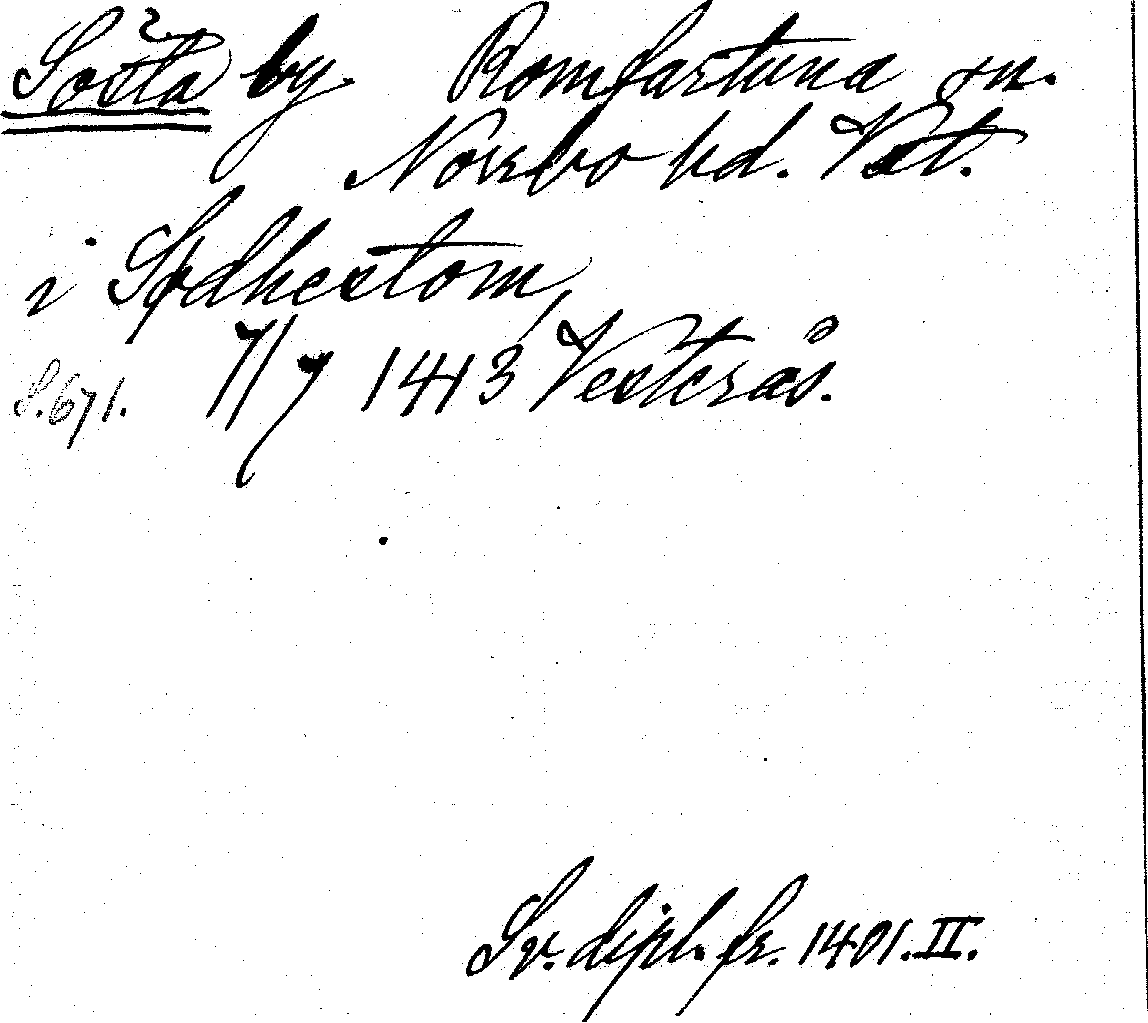 Sösta by Romfartuna sn.
Norrbo hd. Vst.
i Sødhestom,
S. 671. 7/7 1413 Vesterås.
Sv. dipl. fr. 1401. II.